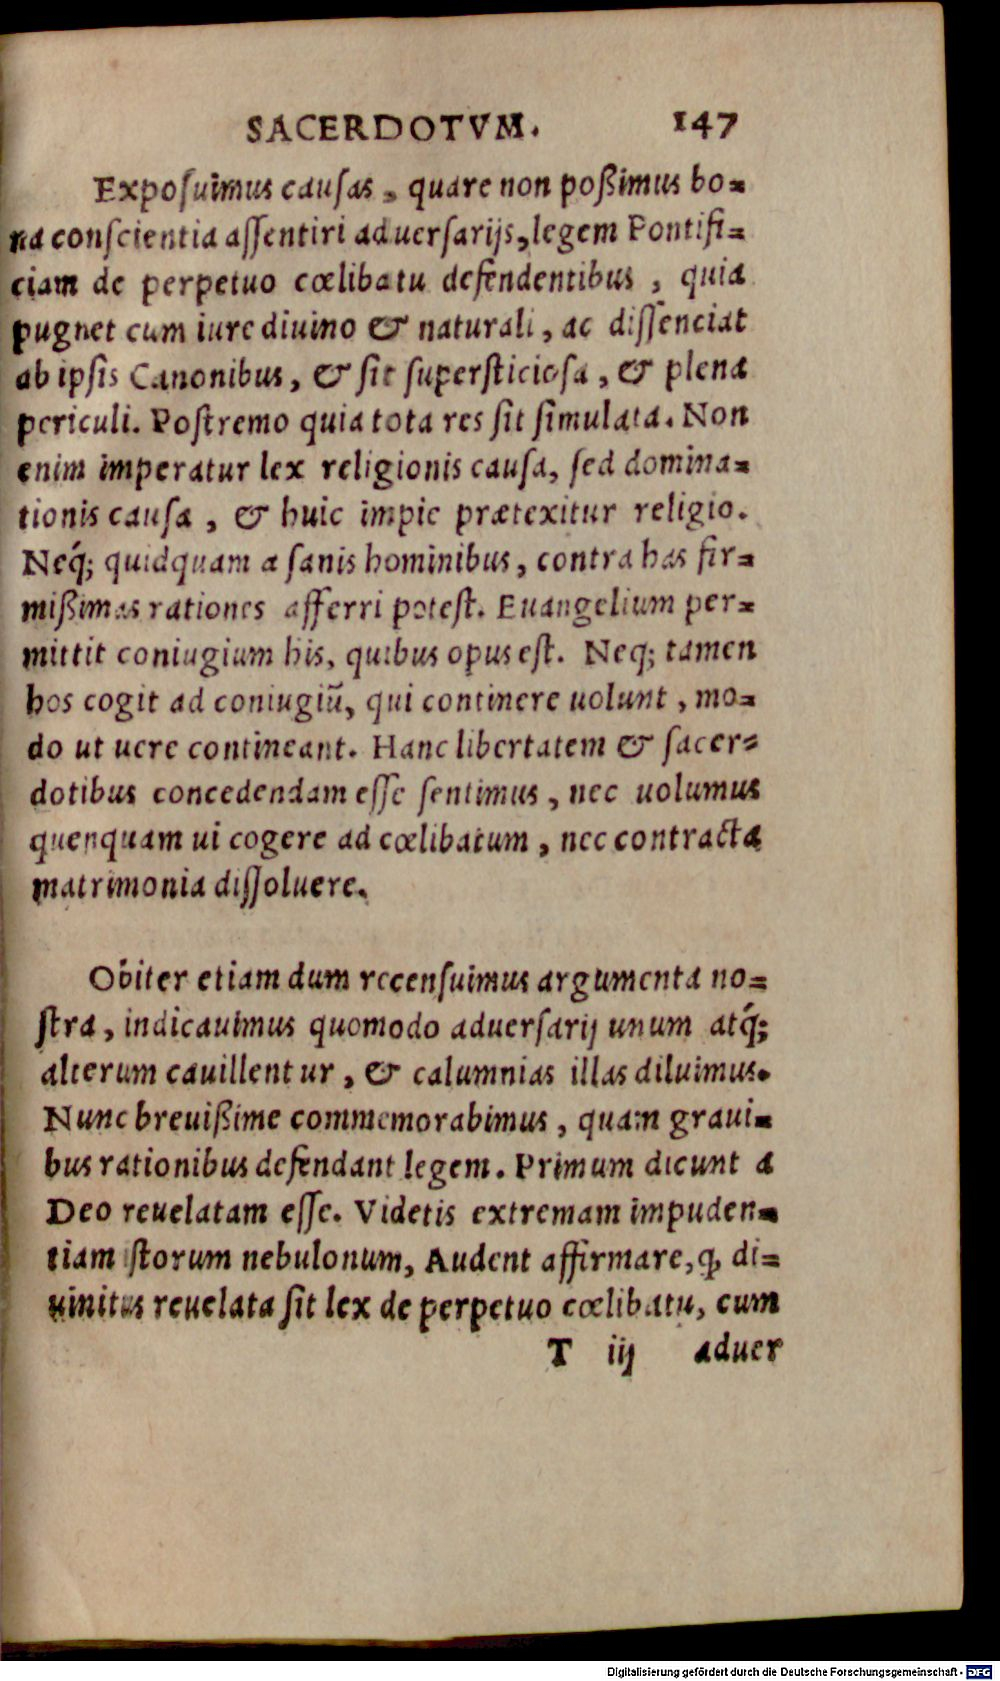 SACERDOTVM. 147
Exposuimus causas, quare non poßimus bo=
na conscientia assentiri aduersarijs, legem Pontifi=
ciam de perpetuo cœlibatu defendentibus, quia
pugnet cum iure diuino & naturali, ac dissenciat
ab ipsis Canonibus, & sit supersticiosa, & plena
periculi. Postremo quia tota res sit simulata. Non
enim imperatur lex religionis causa, sed domina=
tionis causa, & huic impie prætexitur religio.
Neq́; quidquam a sanis hominibus, contra has fir=
mißimas rationes afferri potest. Euangelium per=
mittit coniugium his, quibus opus est. Neq; tamen
hos cogit ad coniugiũ, qui continere uolunt, mo=
do ut uere contineant. Hanc libertatem & sacer=
dotibus concedendam esse sentimus, nec uolumus
quenquam ui cogere ad cœlibatum, nec contracta
matrimonia dissoluere.
Obiter etiam dum recensuimus argumenta no=
stra, indicauimus quomodo aduersarij unum atq́;
alterum cauillentur, & calumnias illas diluimus.
Nunc breuißime commemorabimus, quam graui=
bus rationibus defendant legem. Primum dicunt a
Deo reuelatam esse. Videtis extremam impuden=
tiam istorum nebulonum, Audent affirmare, ꝙ di=
uinitus reuelata sit lex de perpetuo cœlibatu, cum
T iij aduer
Digitalisierung gefördert durch die Deutsche Forschungsgemeinschaft - DFG